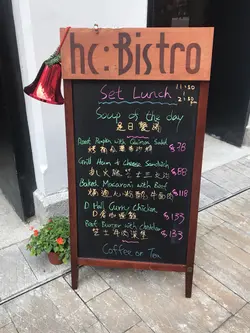 hc:Bistro
Set Lunch
11:30
-
2:30
pm
Soup of the day
是日餐湯
Roast Pumpkin with Quinoa Salad $78
Grill Ham & Cheese Sandwich $88
火腿芝士三文治
Baked Macaroni with Beef $118
D Hall Curry Chicken $133
Beef Burger with cheddar $133
芝士牛肉漢堡
Coffee or Tea